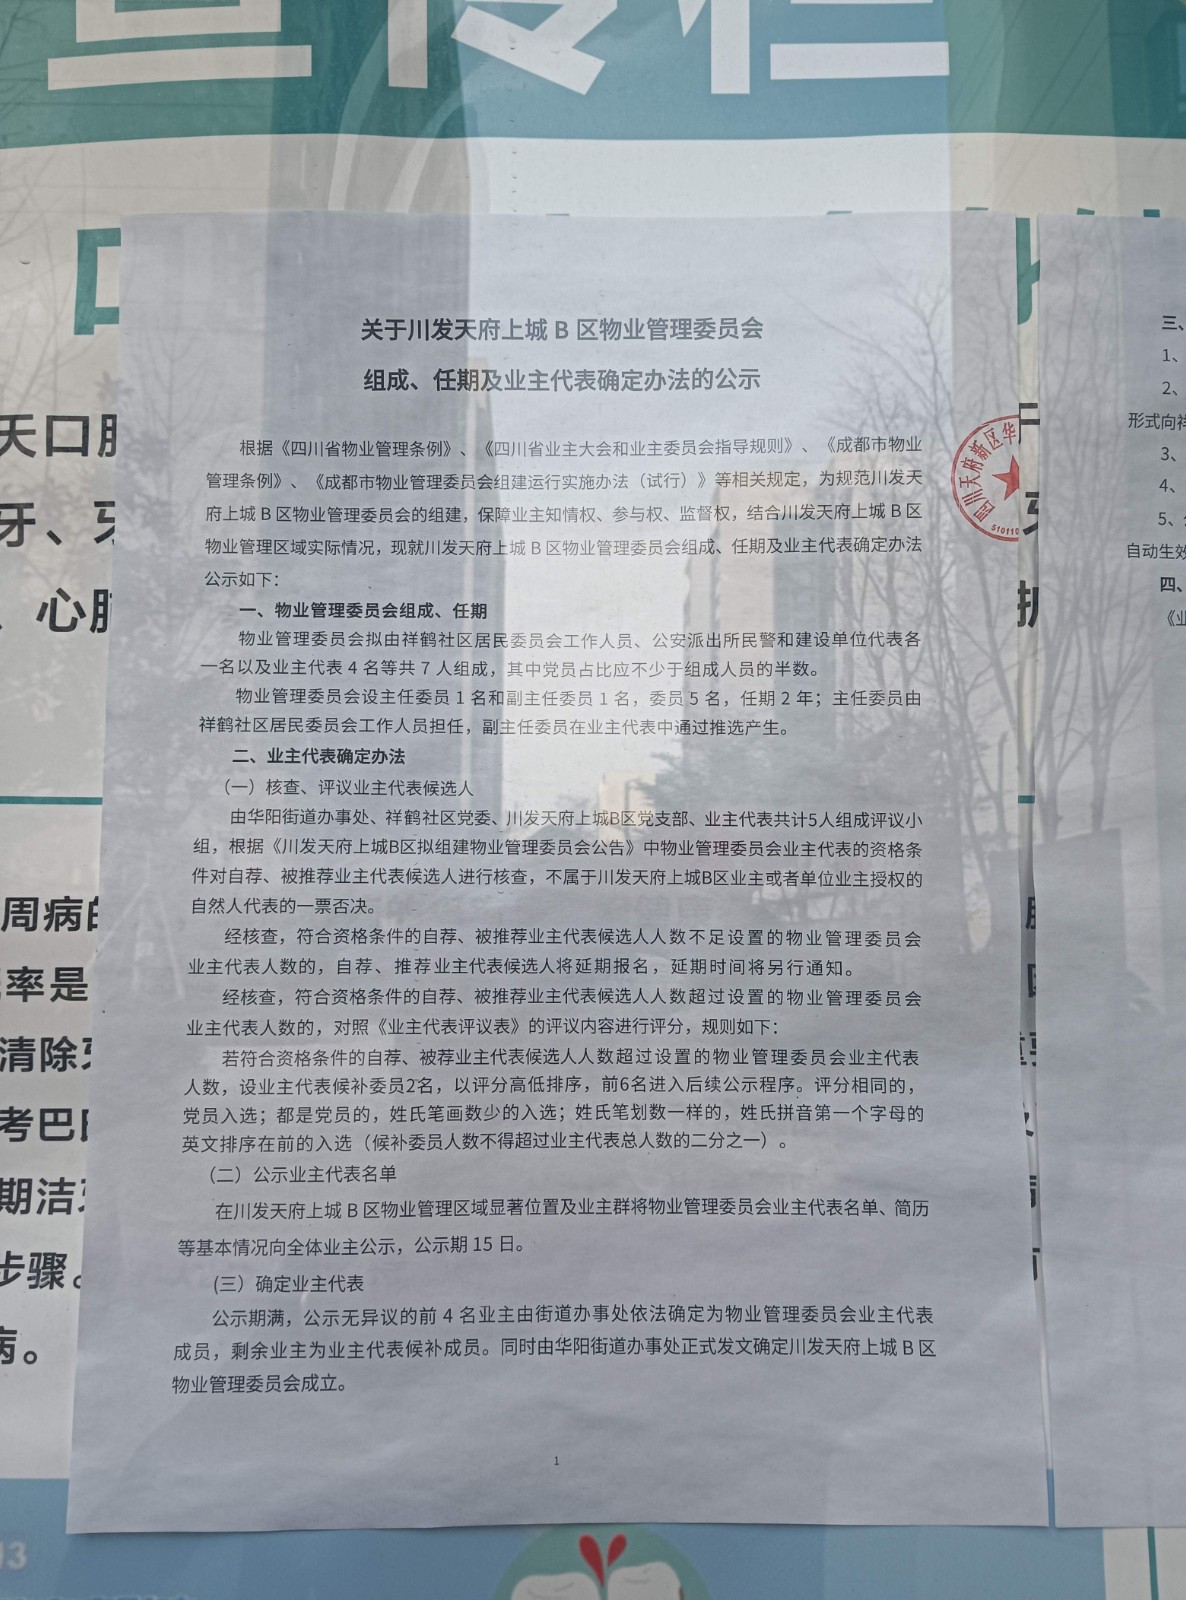 宣传栏
关于川发天府上城 B 区物业管理委员会
组成、任期及业主代表确定办法的公示
根据《四川省物业管理条例》、《四川省业主大会和业主委员会指导规则》、《成都市物业
管理条例》、《成都市物业管理委员会组建运行实施办法（试行）》等相关规定，为规范川发天
府上城 B 区物业管理委员会的组建，保障业主知情权、参与权、监督权，结合川发天府上城 B 区
物业管理区域实际情况，现就川发天府上城 B 区物业管理委员会组成、任期及业主代表确定办法
公示如下：
一、物业管理委员会组成、任期
物业管理委员会拟由祥鹤社区居民委员会工作人员、公安派出所民警和建设单位代表各
一名以及业主代表 4 名等共 7 人组成，其中党员占比应不少于组成人员的半数。
物业管理委员会设主任委员 1 名和副主任委员 1 名，委员 5 名，任期 2 年；主任委员由
祥鹤社区居民委员会工作人员担任，副主任委员在业主代表中通过推选产生。
二、业主代表确定办法
（一）核查、评议业主代表候选人
由华阳街道办事处、祥鹤社区党委、川发天府上城B区党支部、业主代表共计5人组成评议小
组，根据《川发天府上城B区拟组建物业管理委员会公告》中物业管理委员会业主代表的资格条
件对自荐、被推荐业主代表候选人进行核查，不属于川发天府上城B区业主或者单位业主授权的
自然人代表的一票否决。
经核查，符合资格条件的自荐、被推荐业主代表候选人人数不足设置的物业管理委员会
业主代表人数的，自荐、推荐业主代表候选人将延期报名，延期时间将另行通知。
经核查，符合资格条件的自荐、被推荐业主代表候选人人数超过设置的物业管理委员会
业主代表人数的，对照《业主代表评议表》的评议内容进行评分，规则如下：
若符合资格条件的自荐、被荐业主代表候选人人数超过设置的物业管理委员会业主代表
人数，设业主代表候补委员2名，以评分高低排序，前6名进入后续公示程序。评分相同的，
党员入选；都是党员的，姓氏笔画数少的入选；姓氏笔划数一样的，姓氏拼音第一个字母的
英文排序在前的入选（候补委员人数不得超过业主代表总人数的二分之一）。
（二）公示业主代表名单
在川发天府上城 B 区物业管理区域显著位置及业主群将物业管理委员会业主代表名单、简历
等基本情况向全体业主公示，公示期 15 日。
(三）确定业主代表
公示期满，公示无异议的前 4 名业主由街道办事处依法确定为物业管理委员会业主代表
成员，剩余业主为业主代表候补成员。同时由华阳街道办事处正式发文确定川发天府上城 B 区
物业管理委员会成立。
1
四川天府新区华
510110
三、
1、
2、
形式向祥
3、
4、
5、
自动生效
四、
《业
天口
牙、
、心
周病的
率是
清除
考巴
期洁
步骤。
病。